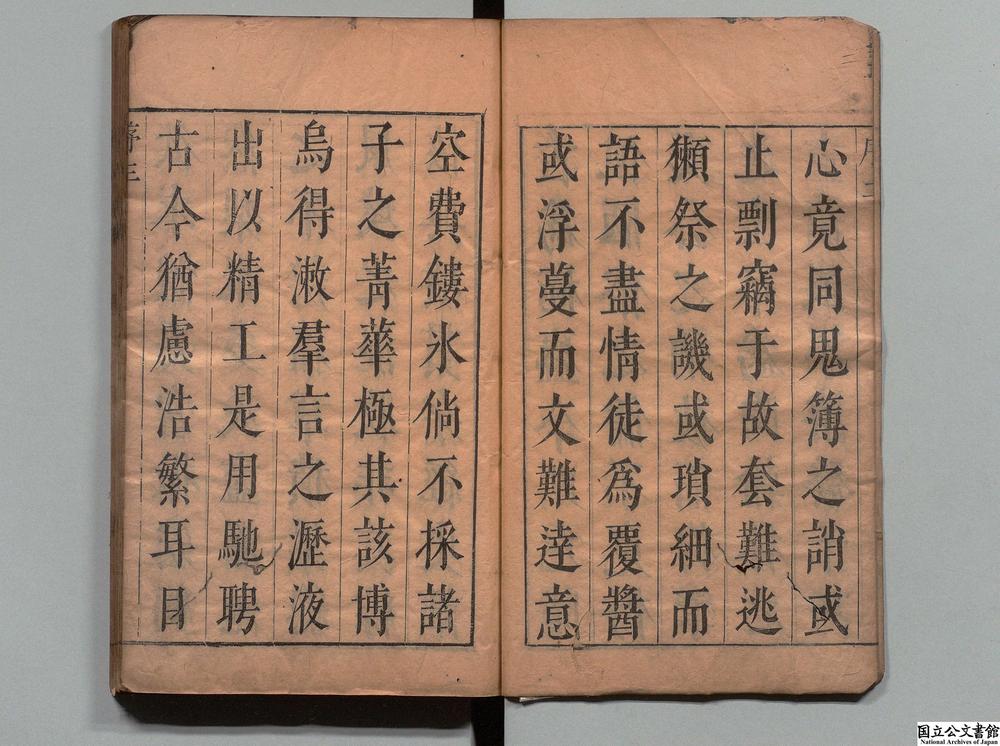 心竟同鬼簿之誚或
止剽竊于故套難逃
獺祭之譏或瑣細而
語不盡情徒爲覆醬
或浮蔓而文難達意
空費鏤氷倘不採諸
子之菁華極其該博
烏得漱羣言之瀝液
出以精工是用馳聘
古今猶慮浩繁耳目
序三
国立公文書館
National Archives of Japan